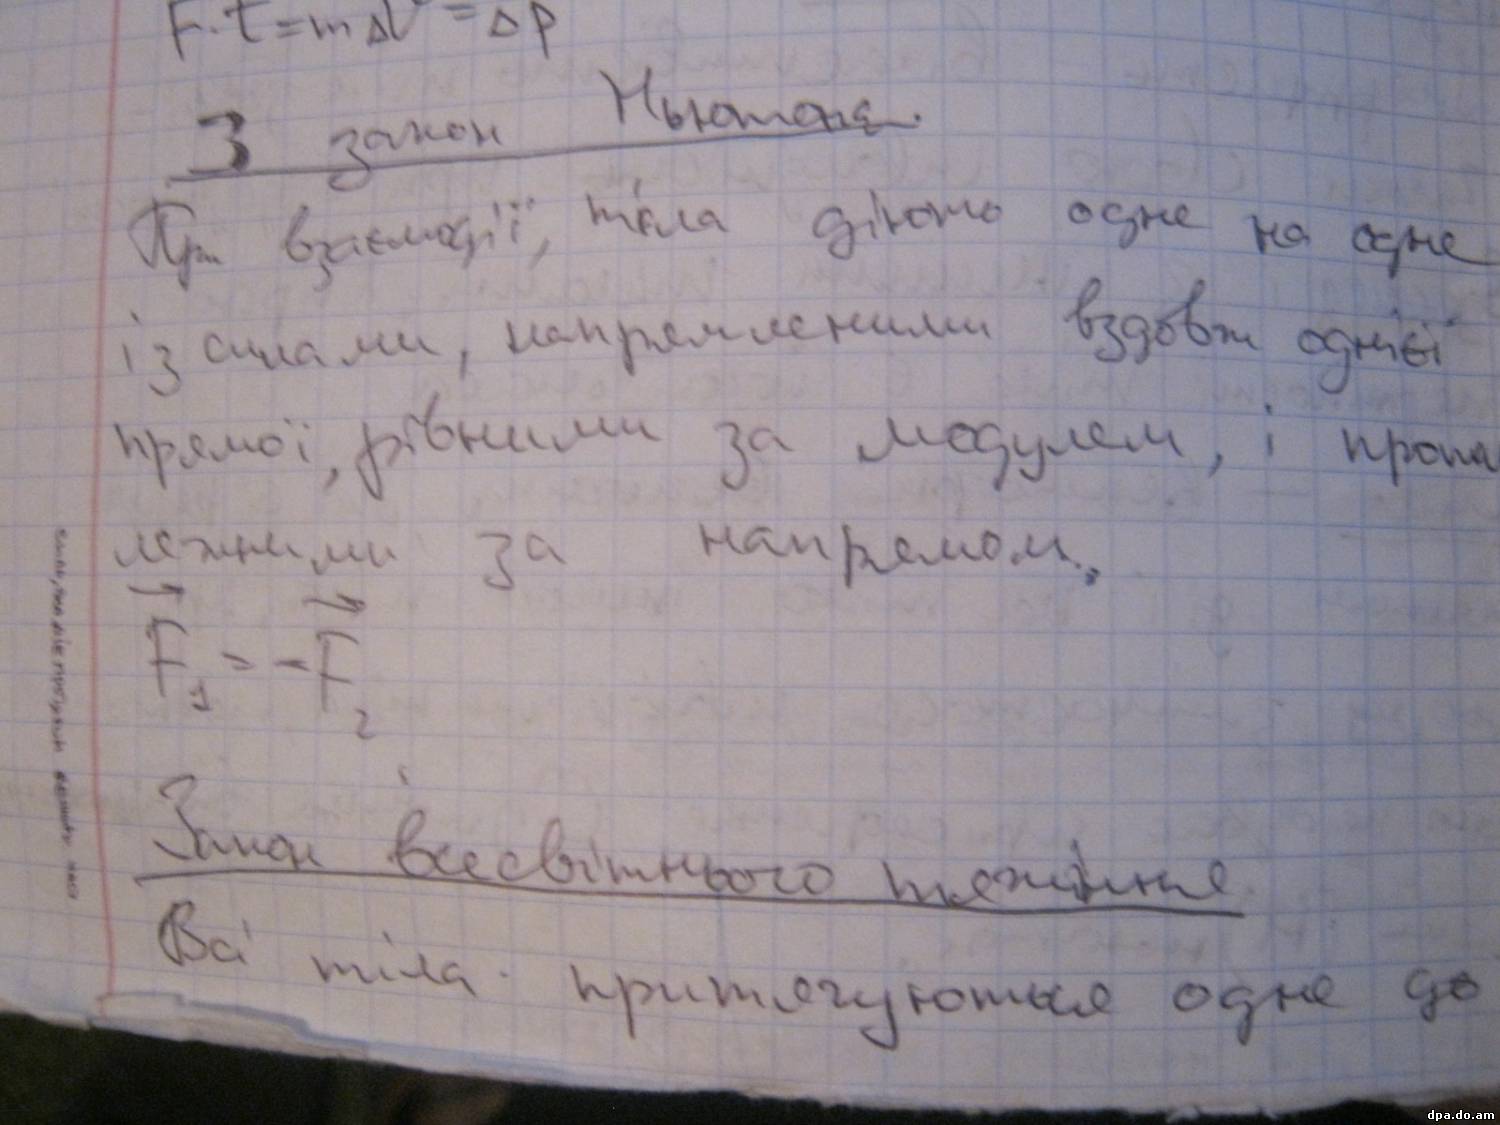 F·t=mΔV=Δp
3 закон Ньютона.
При взаємодії, тіла діють одне на одне
із силами, напрямленими вздовж однієї
прямої, рівними за модулем, і проти
лежними за напрямом.
F₁ = -F₂
Закон всесвітнього тяжіння
Всі тіла притягуються одне до
dpa.do.am